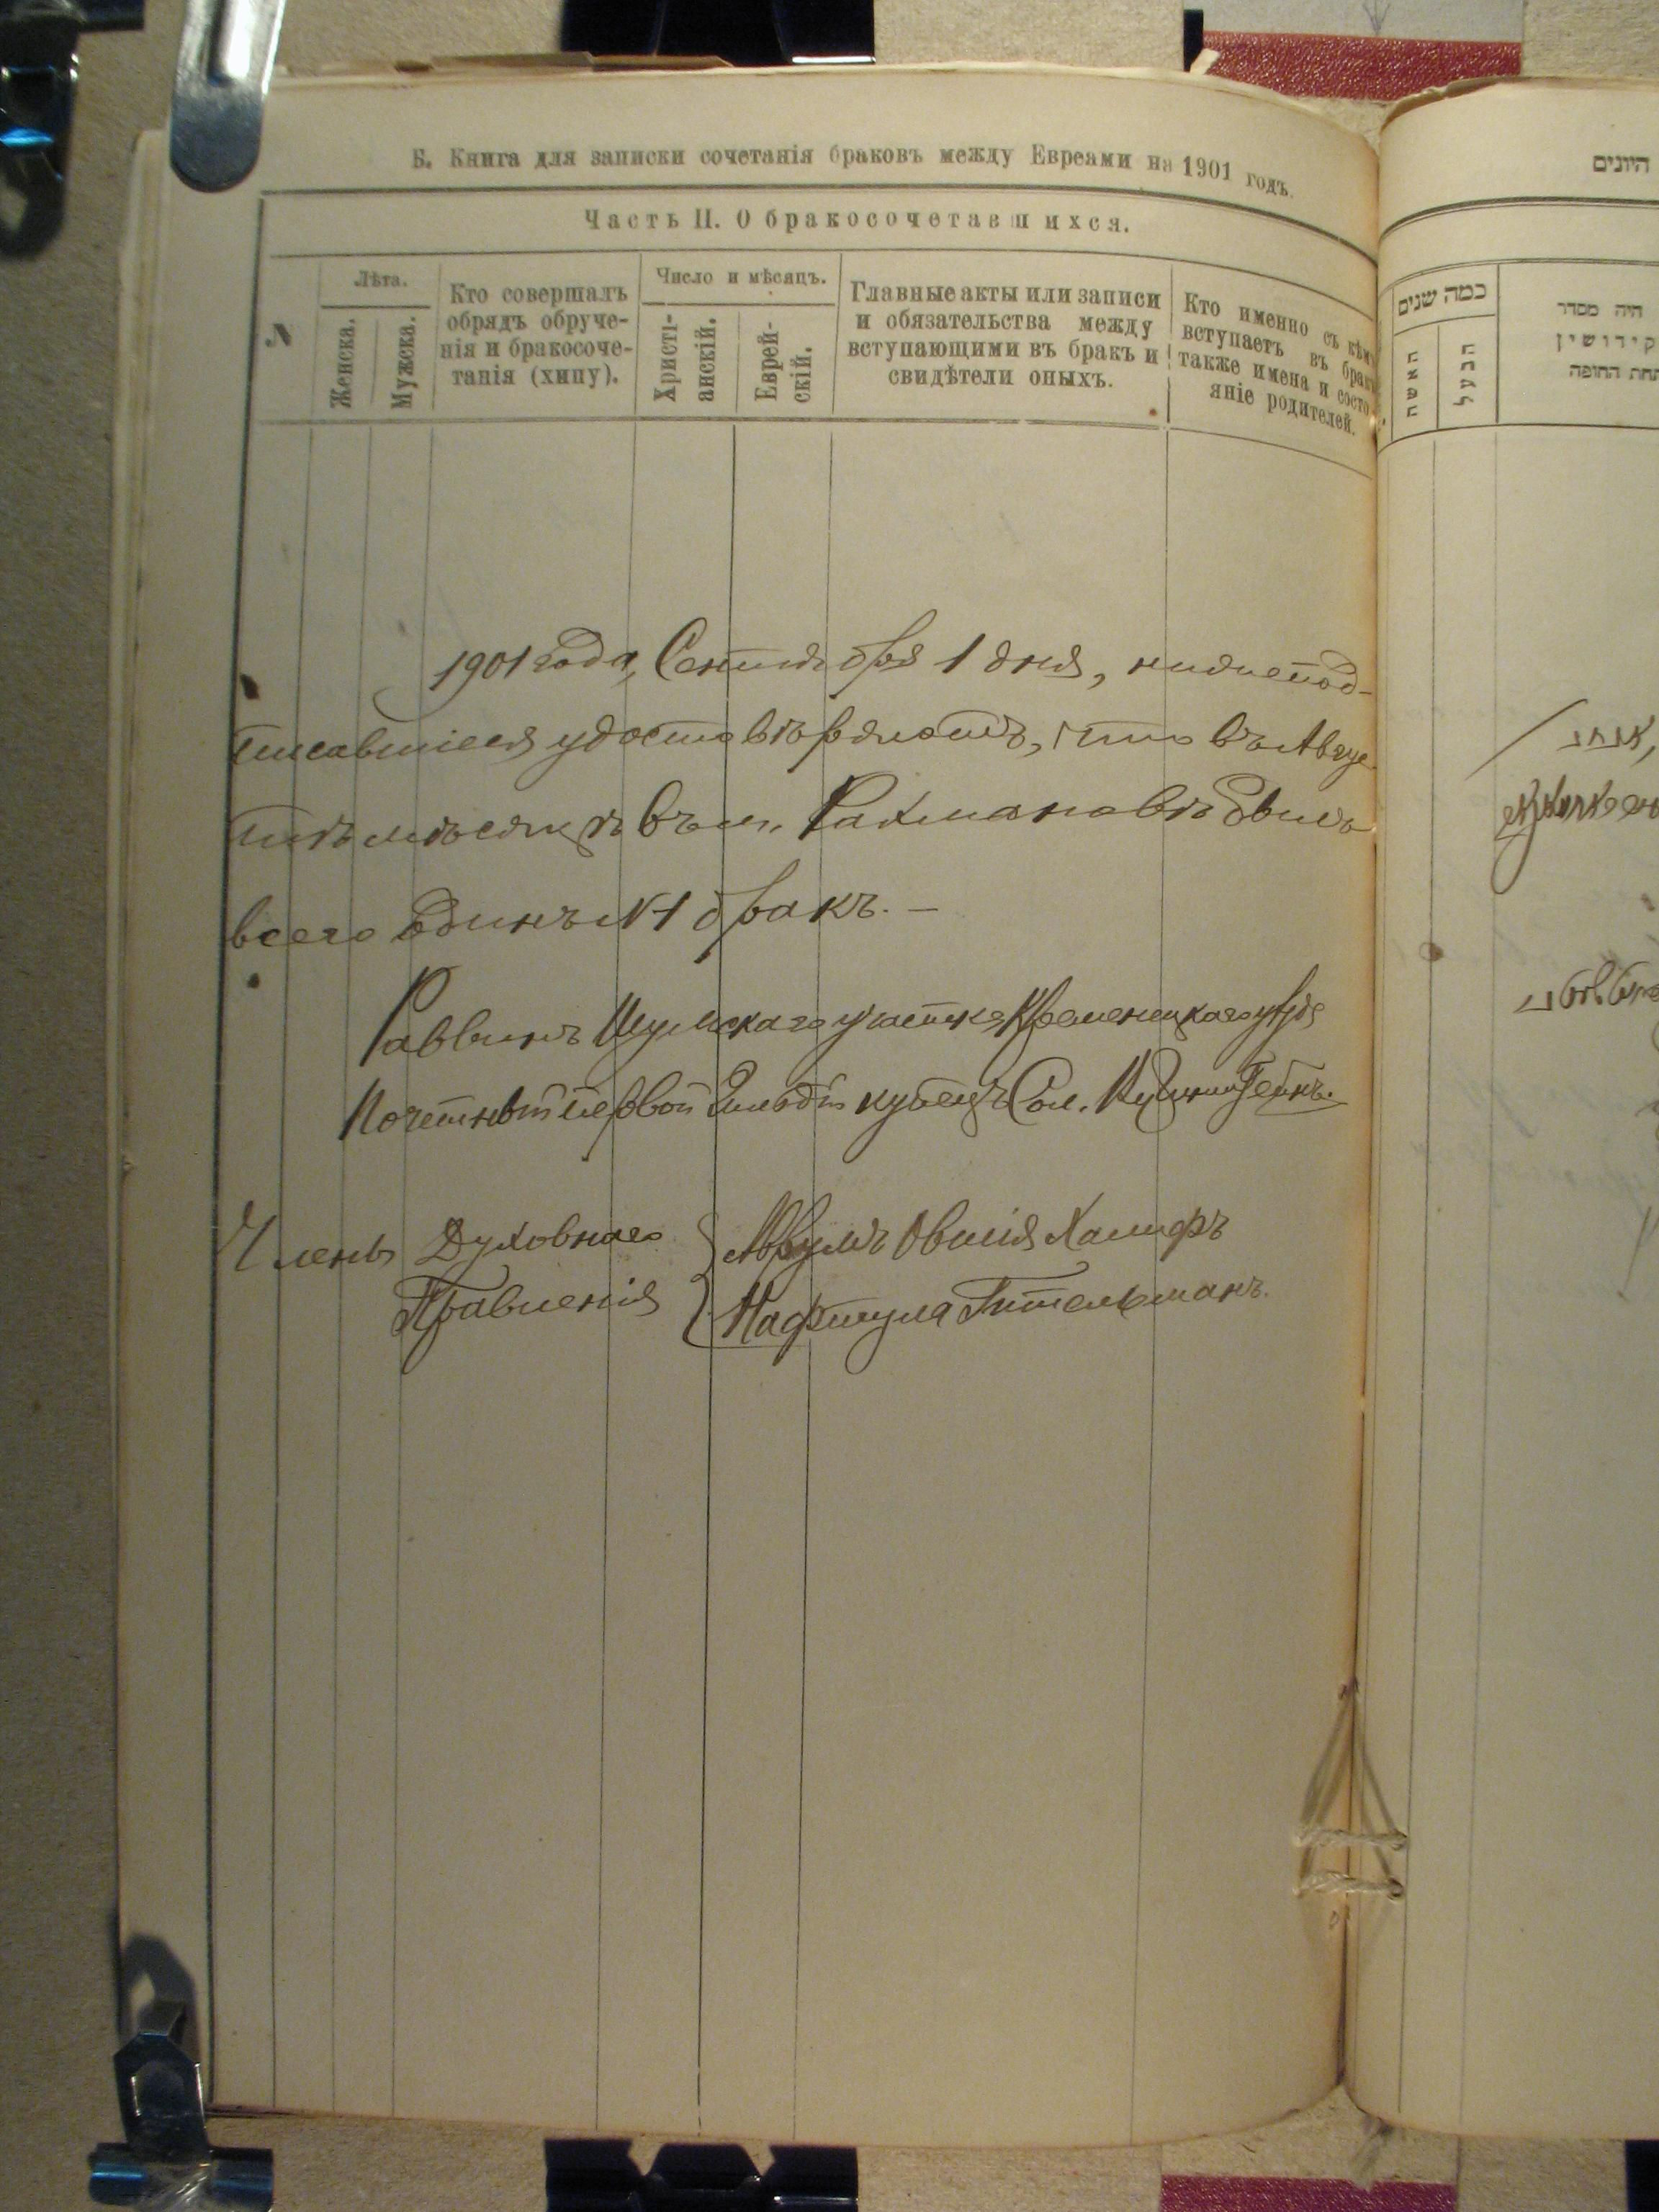 Б. Книга для записки сочетанія браковъ между Евреами на 1901 годъ.
Часть II. О бракосочетавшихся.
№
Лѣта.
Женска.
Мужска.
Кто совершалъ
обрядъ обруче-
нія и бракосоче-
танія (хипу).
Число и мѣсяцъ.
Христі-
анскій.
Еврей-
скій.
Главные акты или записи
и обязательства между
вступающими въ бракъ и
свидѣтели оныхъ.
Кто именно съ кѣмъ
вступаетъ въ бракъ
также имена и состо-
яніе родителей.
1901 года, Сентября 1 дня, нижепод-
писавшіеся удостовѣряютъ, что въ Авгус-
тѣ мѣсяцѣ въ м. Рахмановѣ былъ
всего одинъ № 1 бракъ. —
Раввинъ Шумскаго участка Кременецкаго уѣзда
Почетный первой Гильдіи купецъ Сол.
Члены Духовнаго
Правленія
Аврумъ Овшія Халифъ
Нафтула Гительманъ.
היונים
כמה שנים
האשה
הבעל
היה מסדר
קידושין
תחת החופה